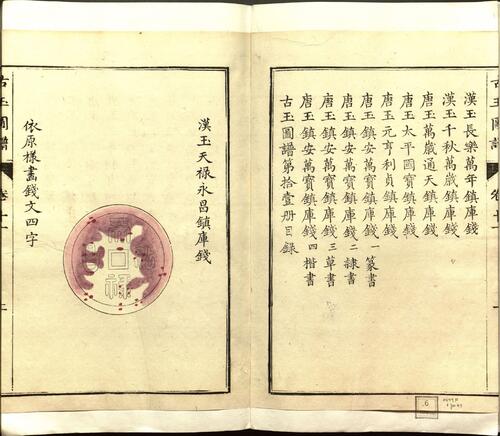 漢玉長樂萬年鎮庫錢
漢玉千秋萬歲鎮庫錢
唐玉萬歲通天鎮庫錢
唐玉太平國寶鎮庫錢
唐玉元亨利貞鎮庫錢
唐玉鎮安萬寶鎮庫錢一篆書
唐玉鎮安萬寶鎮庫錢二隸書
唐玉鎮安萬寶鎮庫錢三草書
唐玉鎮安萬寶鎮庫錢四楷書
古玉圖譜第拾壹册目錄
漢玉天祿永昌鎮庫錢
依原樣畫錢文四字
古玉圖譜
6